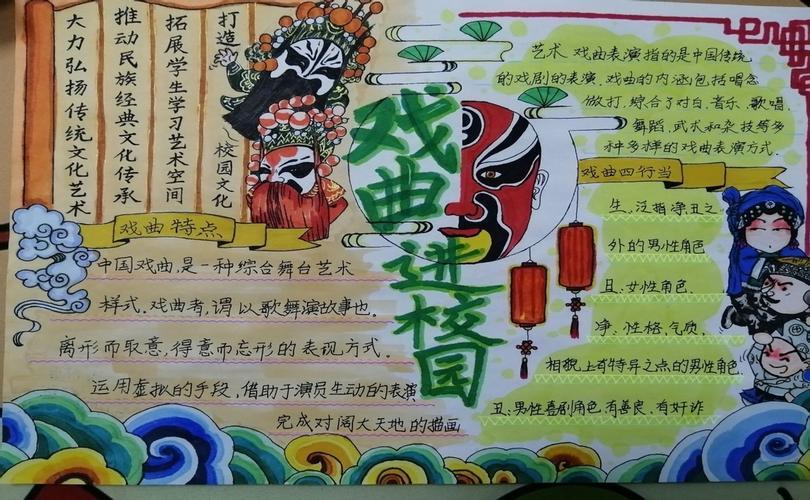 打造~校园文化
拓展学生学习艺术空间
推动民族经典文化传承
大力弘扬传统文化艺术
戏曲进校园
戏曲特点
中国戏曲,是一种综台舞台艺术
样式.戏曲者,谓以歌舞演故事也.
离形而取意,得意而忘形的表现方式.
运用虚拟的手段,借助于演员生动的表演
完成对阔大天地的描画
艺术 戏曲表演指的是中国传统
的戏剧的表演.戏曲的内涵包括唱念
做打,综合了对白.音乐、歌唱.
舞蹈,武术和杂技等多
种多样的戏曲表演方式.
戏曲四行当
生:泛指净丑之
外的男性角色
旦:女性角色.
净:性格,气质.
相貌上有特异之点的男性角色.
丑:男性喜剧角色.有善良.有奸诈